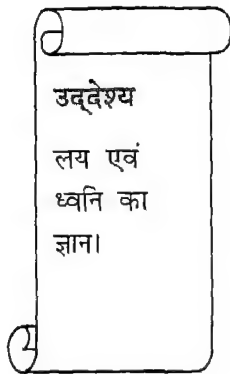 उद्देश्य
लय एवं
ध्वनि का
ज्ञान।